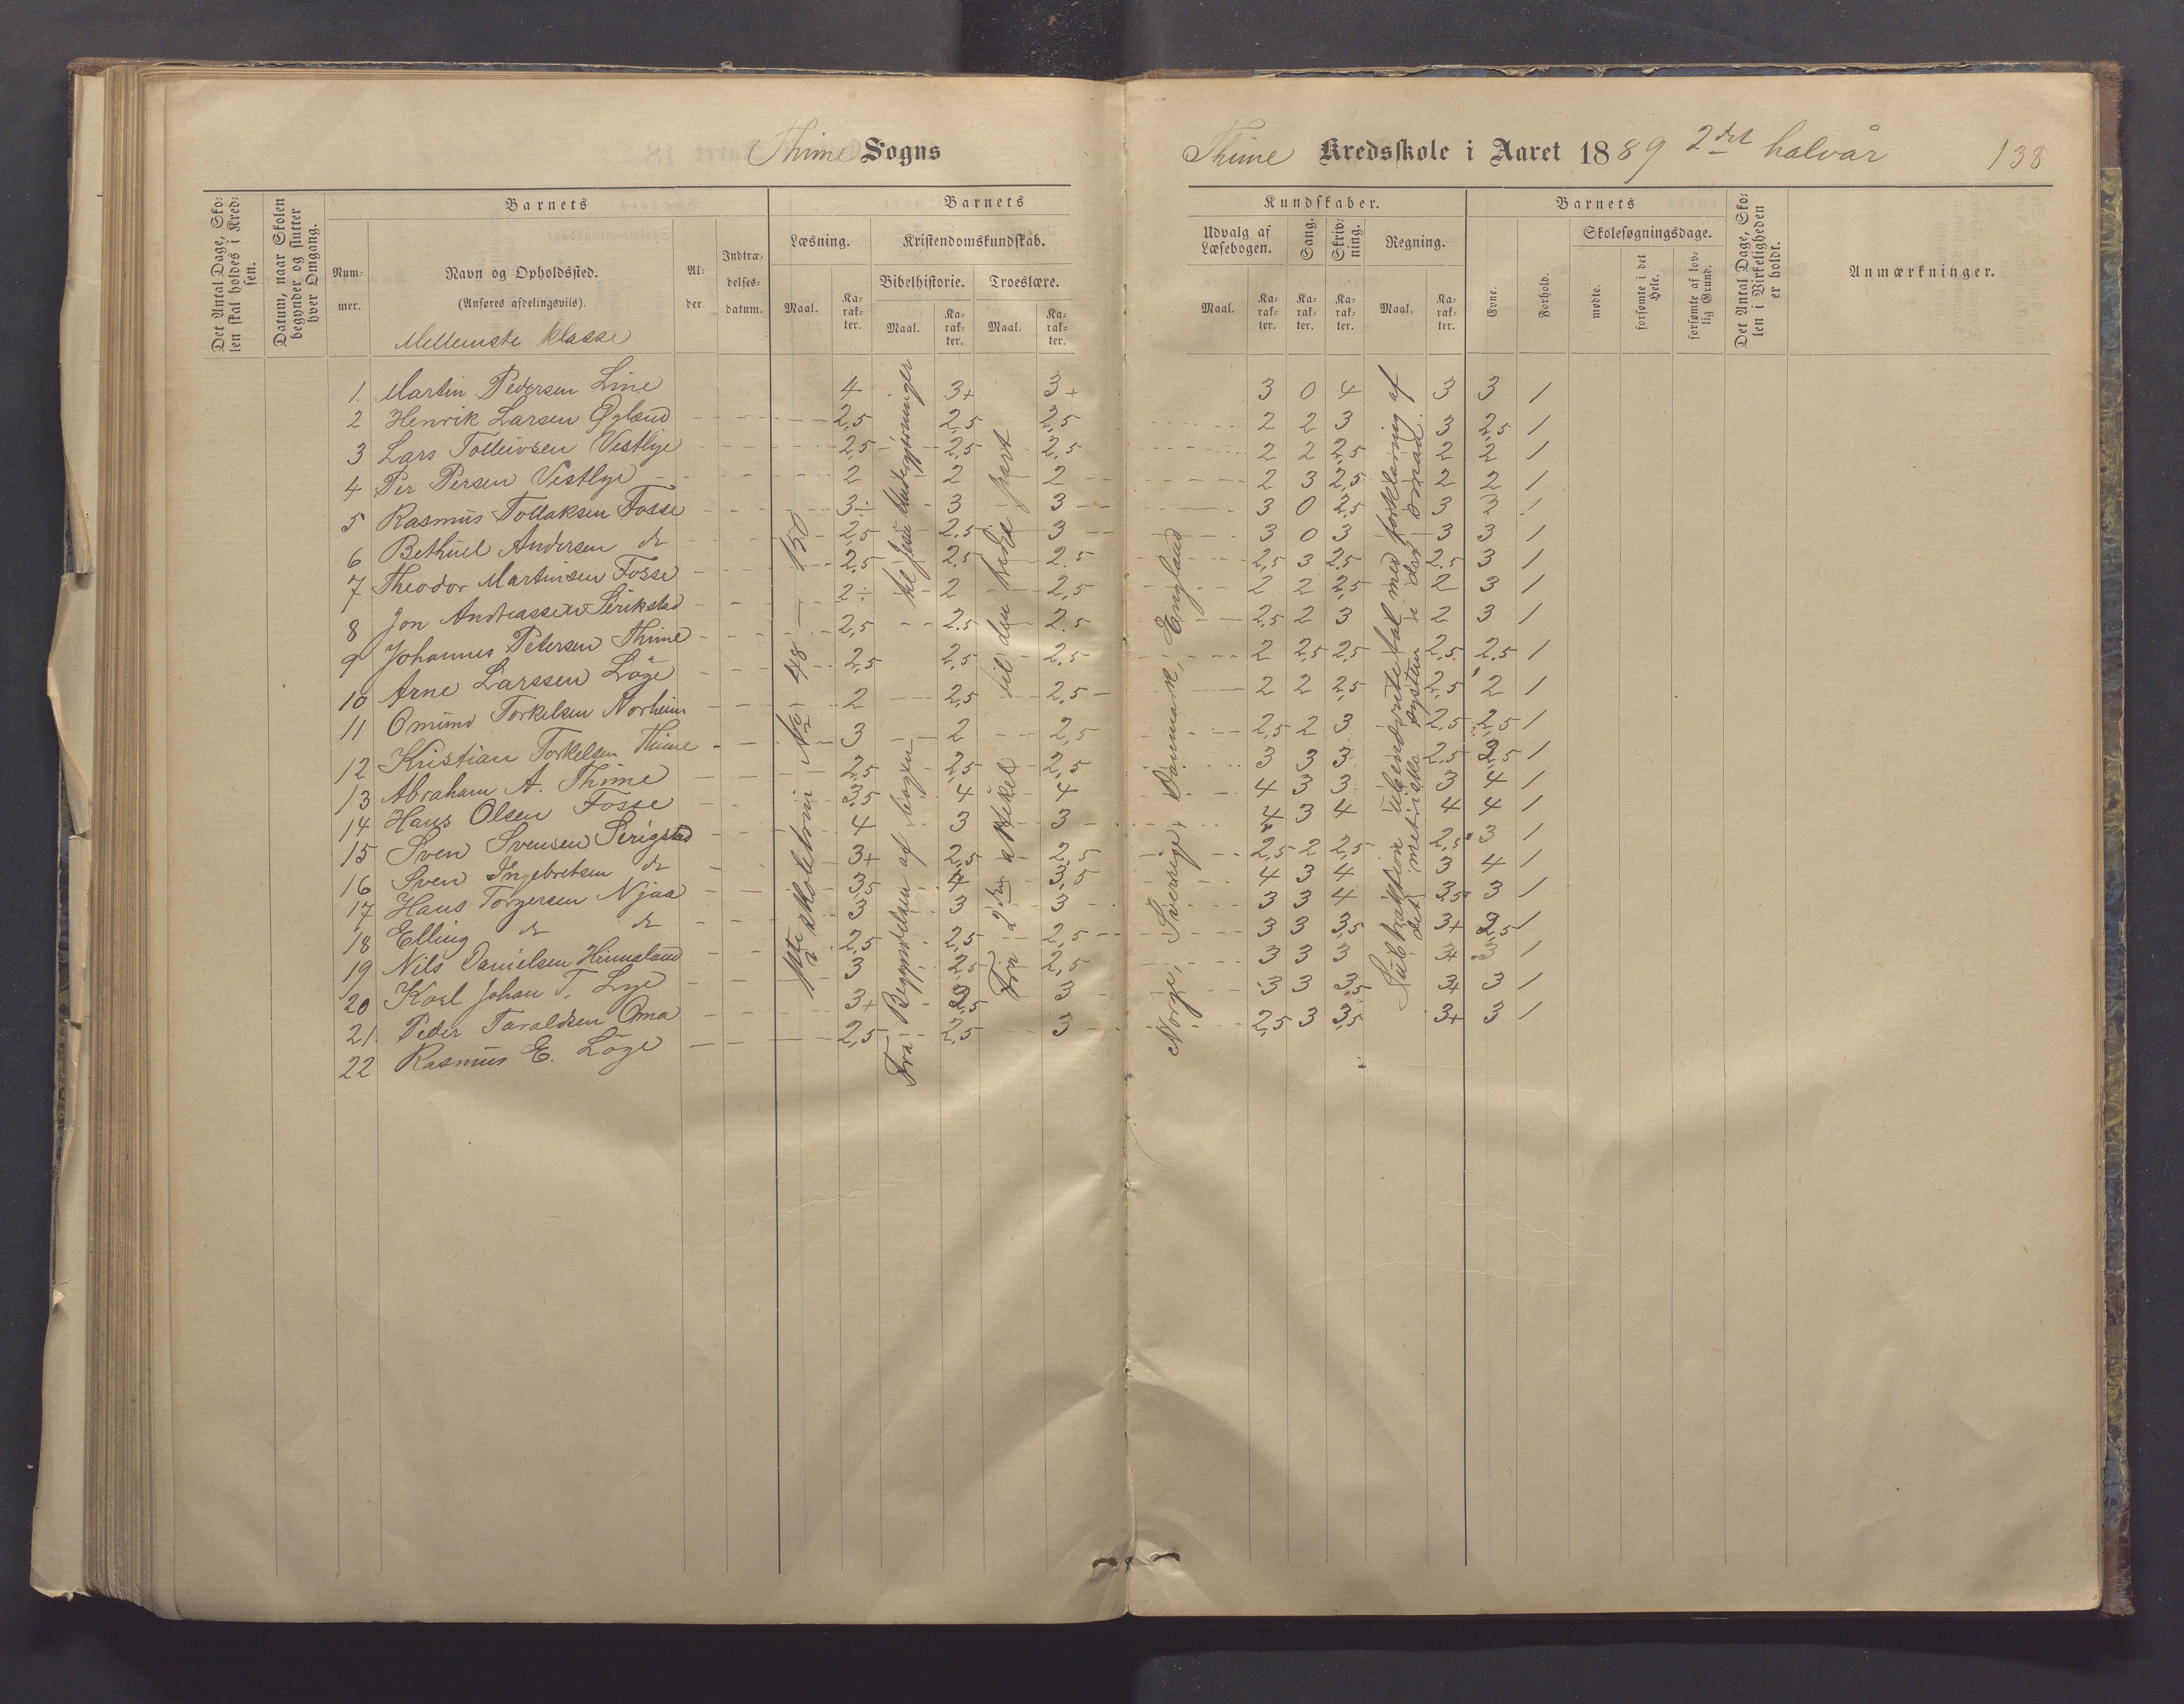 Thime Sogns
Thime Kredsskole i Aaret 1889 2det halvår 138
Det Antal Dage, Sko-
len skal holdes i Kred-
sen.
Datum, naar Skolen
begynder og slutter
hver Omgang.
Barnets
Num-
mer.
Navn og Opholdssted.
(Anføres afdelingsviis).
Mellemste klasse
Al-
der.
Indtræ-
delses-
datum.
Barnets
Læsning.
Maal.
Ka-
rak-
ter.
Kristendomskundskab.
Bibelhistorie.
Maal.
Ka-
rak-
ter.
Troeslære.
Maal.
Ka-
rak-
ter.
Kundskaber.
Udvalg af
Læsebogen.
Maal.
Ka-
rak-
ter.
Sang.
Ka-
rak-
ter.
Skriv-
ning.
Ka-
rak-
ter.
Regning.
Maal.
Ka-
rak-
ter.
Barnets
Evne.
Forhold.
Skolesøgningsdage.
mødte.
forsømte i det
Hele.
forsømte af lov-
lig Grund.
Det Antal Dage, Sko-
len i Virkeligheden
er holdt.
Anmærkninger.
1. Martin Pedersen Line 4 3+ 3+ 3 0 4 3 3 1
2 Henrik Larsen Øglænd 2,5 2,5 2,5 2 2 3 3 2,5 1
3 Lars Tolleivsen Vestlye 2,5 2,5 2,5 2 2 2,5 2 2 1
4 Per Persen Vestlye 2 2 2 2 3 2,5 2 2 1
5 Rasmus Tollaksen Fosse 3÷ 3 3 3 0 2,5 3 3 1
6 Bethuel Andersen do 2,5 2,5 3 3 0 3 3 3 1
7 Theodor Martinsen Fosse 2,5 2,5 2,5 2,5 3 2,5 2,5 3 1
8 Jon Andreassen Serikstad 2÷ 2 2,5 2 2 2,5 2 3 1
9 Johannes Petersen Thime 2,5 2,5 2,5 2,5 2 3 2 3 1
10 Arne Larssen Löge 2,5 2,5 2,5 2 2,5 2,5 2,5 2,5 1
11 Omund Torkelsen Norheim 2 2,5 2,5 2 2 2,5 2,5 2 1
12 Kristian Torkelsen Thime 3 2 2,5 2,5 2 3 2,5 2,5 1
13 Abraham A. Thime 2,5 2,5 2,5 3 3 3 2,5 2,5 1
14 Hans Olsen Fosse 3,5 4 4 4 3 3 3 4 1
15 Sven Svensen Serigstad 4 3 3 4 3 4 4 4 1
16 Sven Ingebretsen do 3+ 2,5 2,5 2,5 2 2,5 2,5 3 1
17 Hans Torgersen Njaa 3,5 4 3,5 4 3 4 3 4 1
18 Elling do do 3 3 3 3 3 4 3,5+ 3 1
19 Nils Danielsen Hinnaland 2,5 2,5 2,5 3 3 3,5 3+ 2,5 1
20 Karl Johan T. Lye 3 2,5 2,5 3 3 3 3+ 3 1
21. Peder Taraldsen Oma 3+ 2,5 3 3 3 3,5 3+ 3 1
22 Rasmus E. Löge 2,5 2,5 3 2,5 3 3,5 3+ 3 1
1ste skoletrin No 48 — 130
Fra Begyndelsen af bogen til Jesu Undergjerninger
Fra 2den artikel til den tredje part
Norge, Sverrige, Danmark, England
Subtraktion ubenævnte tal med forklaring af
det metriske system i dets småd.